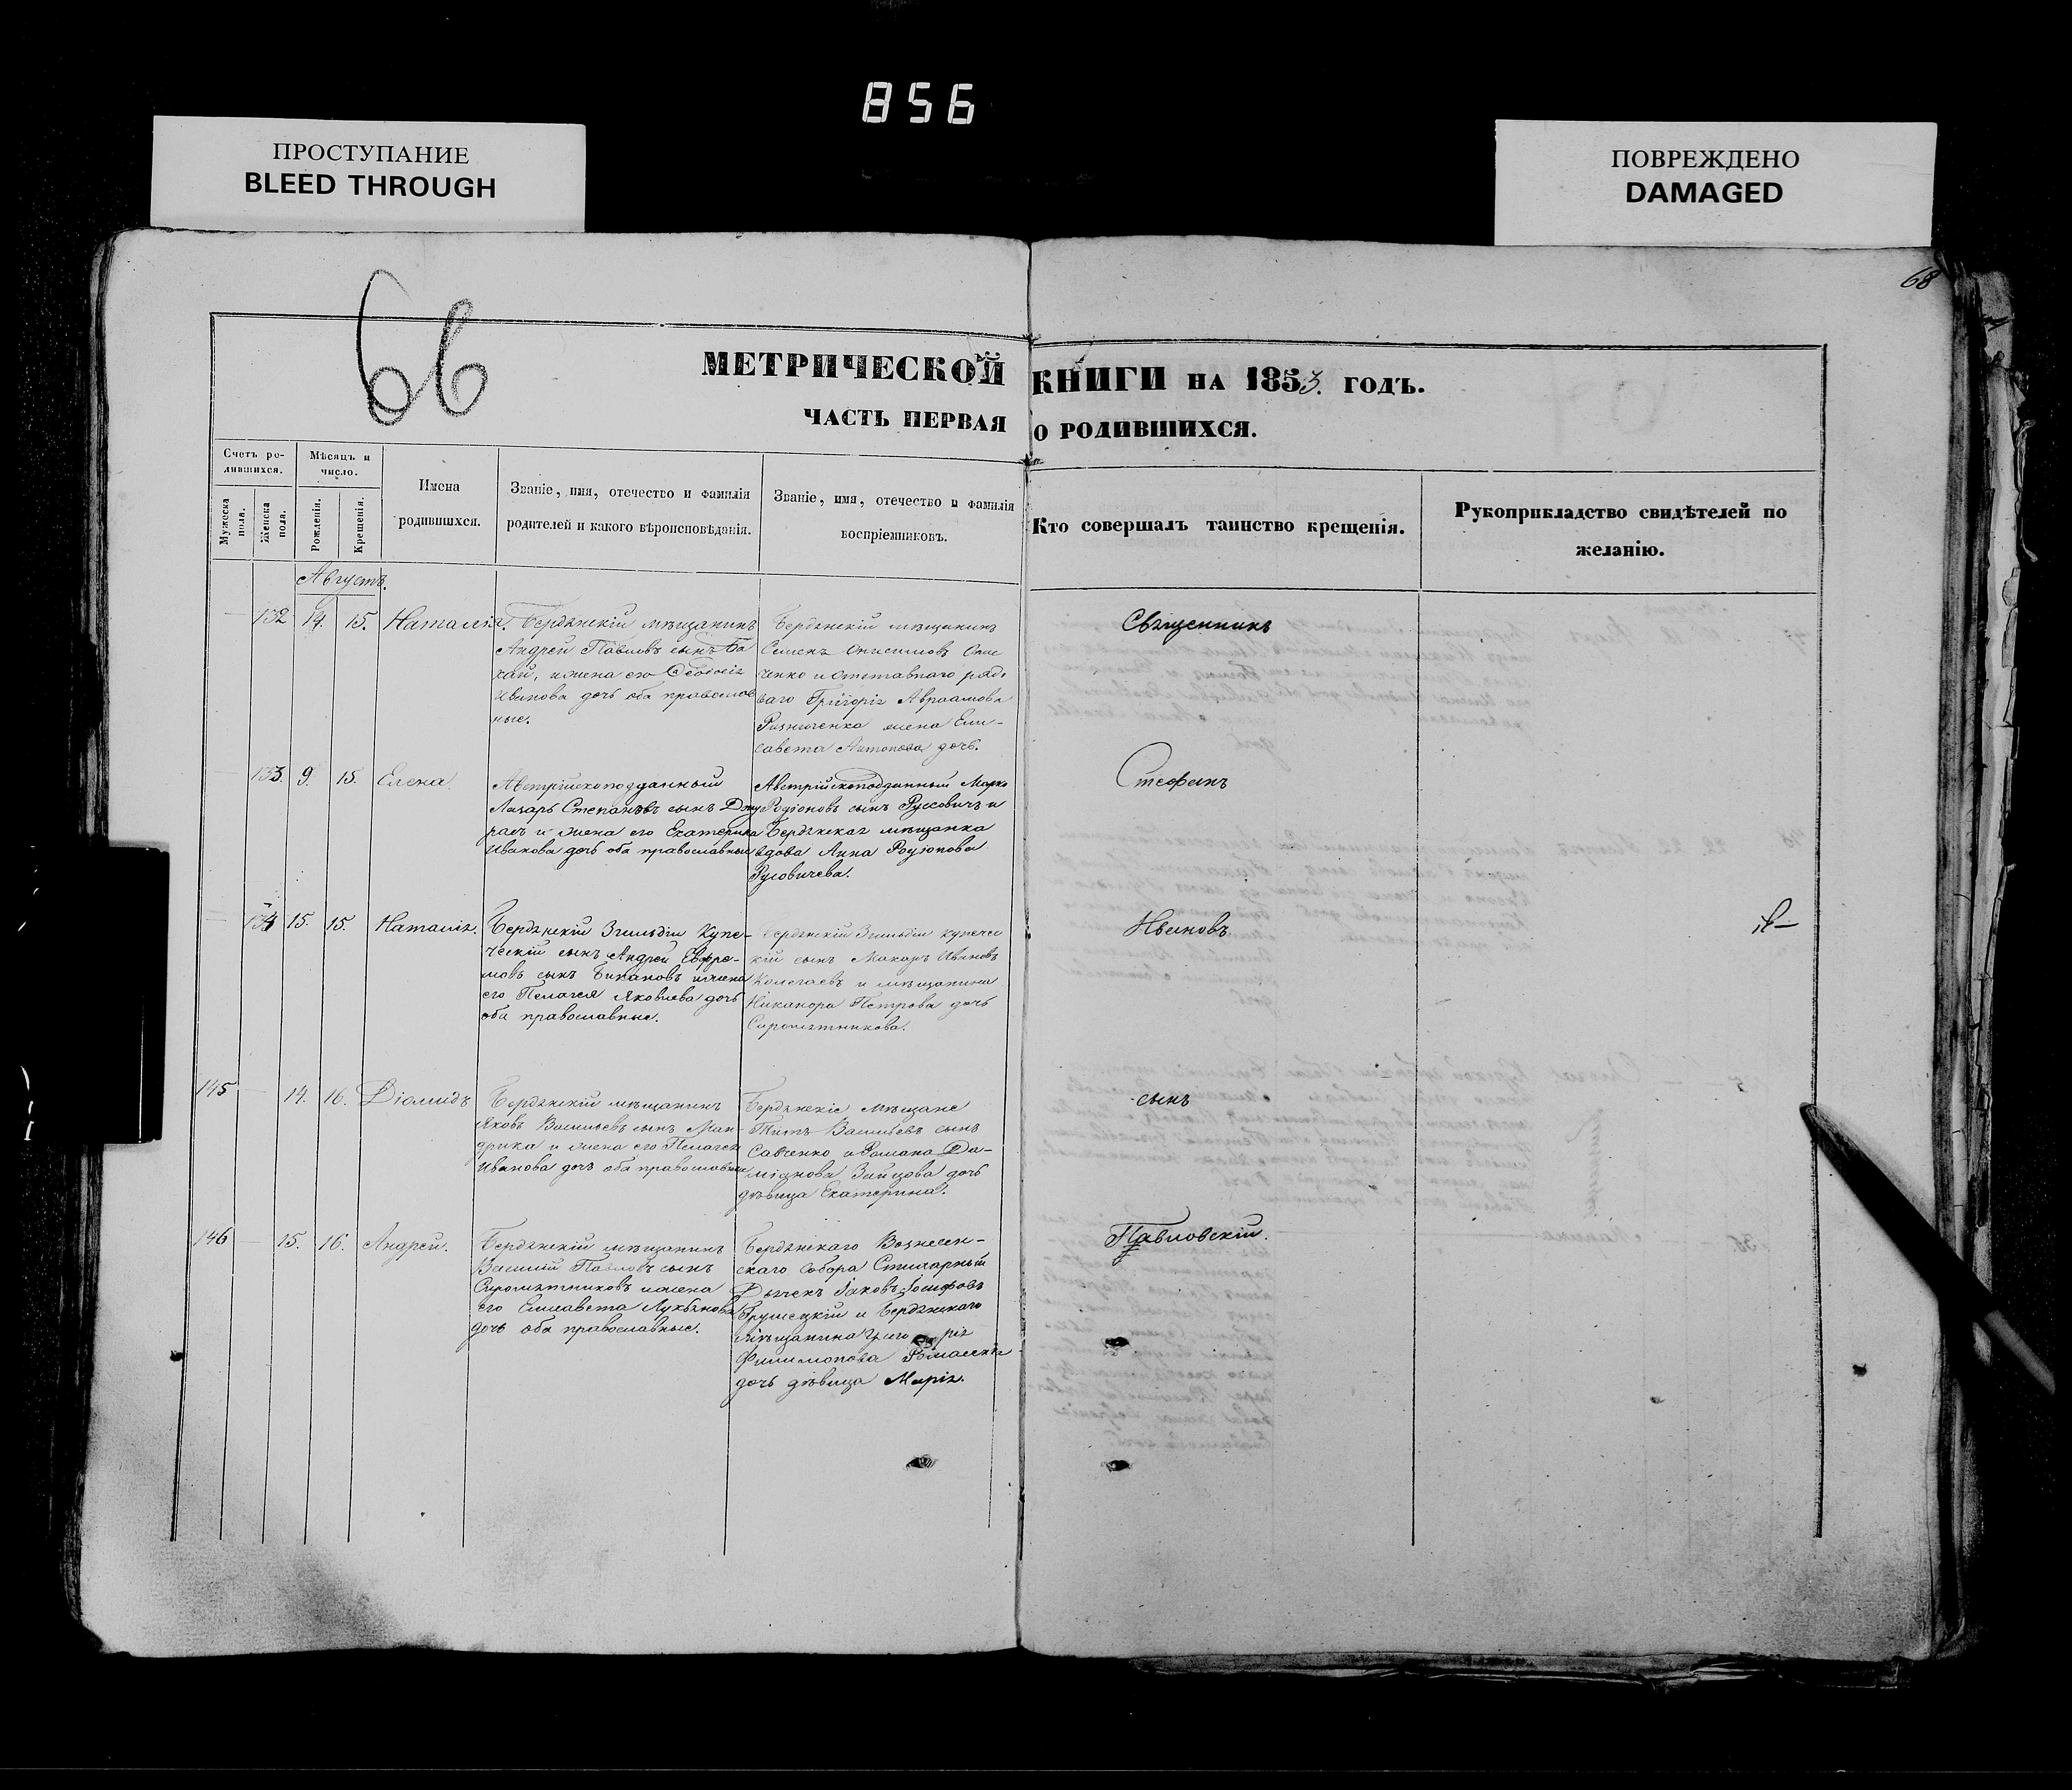 856
ПРОСТУПАНИЕ
BLEED THROUGH
ПОВРЕЖДЕНО
DAMAGED
68
66
МЕТРИЧЕСКОЙ КНИГИ НА 1853. ГОДЪ.
ЧАСТЬ ПЕРВАЯ О РОДИВШИХСЯ.
Счетъ ро-
дившихся.
Мужеска пола.
Женска пола.
Мѣсяцъ и
число.
Рожденія.
Крещенія.
Имена
родившихся.
Званіе, имя, отечество и фамилія
родителей и какого вѣроисповѣданія.
Званіе, имя, отечество и фамилія
воспріемниковъ.
Кто совершалъ таинство крещенія.
Рукоприкладство свидѣтелей по
желанію.
Августъ.
132 14. 15. Наталія.
Бердянскій мѣщанинъ
Андрей Павловъ сынъ
жена его Ѳеодосія
Иванова дочь оба православ
ные.
Бердянскій мѣщанинъ
Семенъ Онисимовъ
и отставнаго рядо
ваго Григорія Авраамова
жена Ели-
савета Антонова дочь.
Священникъ
133. 9. 15. Елена.
Австрійскоподданный
Лазарь Степановъ сынъ
и жена его Екатерина
Иванова дочь оба православные
Австрійскоподданный Марко
Родіоновъ сынъ Руссовичъ и
Бердянская мѣщанка
вдова Анна Родіонова
Русовичева.
Стефанъ
134 15. 15. Наталія.
Бердянскій 3 гильдіи Купе-
ческій сынъ Андрей Ефре-
мовъ сынъ и жена
его Пелагея Яковлева дочь
оба православные.
Бердянскій 3 гильдіи купечес
кій сынъ Макаръ Ивановъ
и мѣщанина
Никанора Петрова дочь
Сыромятникова.
Ивановъ
145 14. 16. Діомидъ
Бердянскій мѣщанинъ
Яковъ Васильевъ сынъ Ман-
дрика и жена его Пелагея
Иванова дочь оба православные
Бердянскіе мѣщане
Титъ Васильевъ сынъ
Савченко и Романа Да-
міанова Зайцова дочь
дѣвица Екатерина.
сынъ
146 15. 16. Андрей.
Бердянскій мѣщанинъ
Василій Павловъ сынъ
Сыромятниковъ и жена
его Елисавета Лукьянова
дочь оба православные.
Бердянскаго Вознесен-
скаго Собора Стихарный
Дьячекъ Іаковъ Іосифовъ
Грушецкій и Бердянскаго
мѣщанина Григорія
Филимонова
дочь дѣвица Марія.
Павловскій.